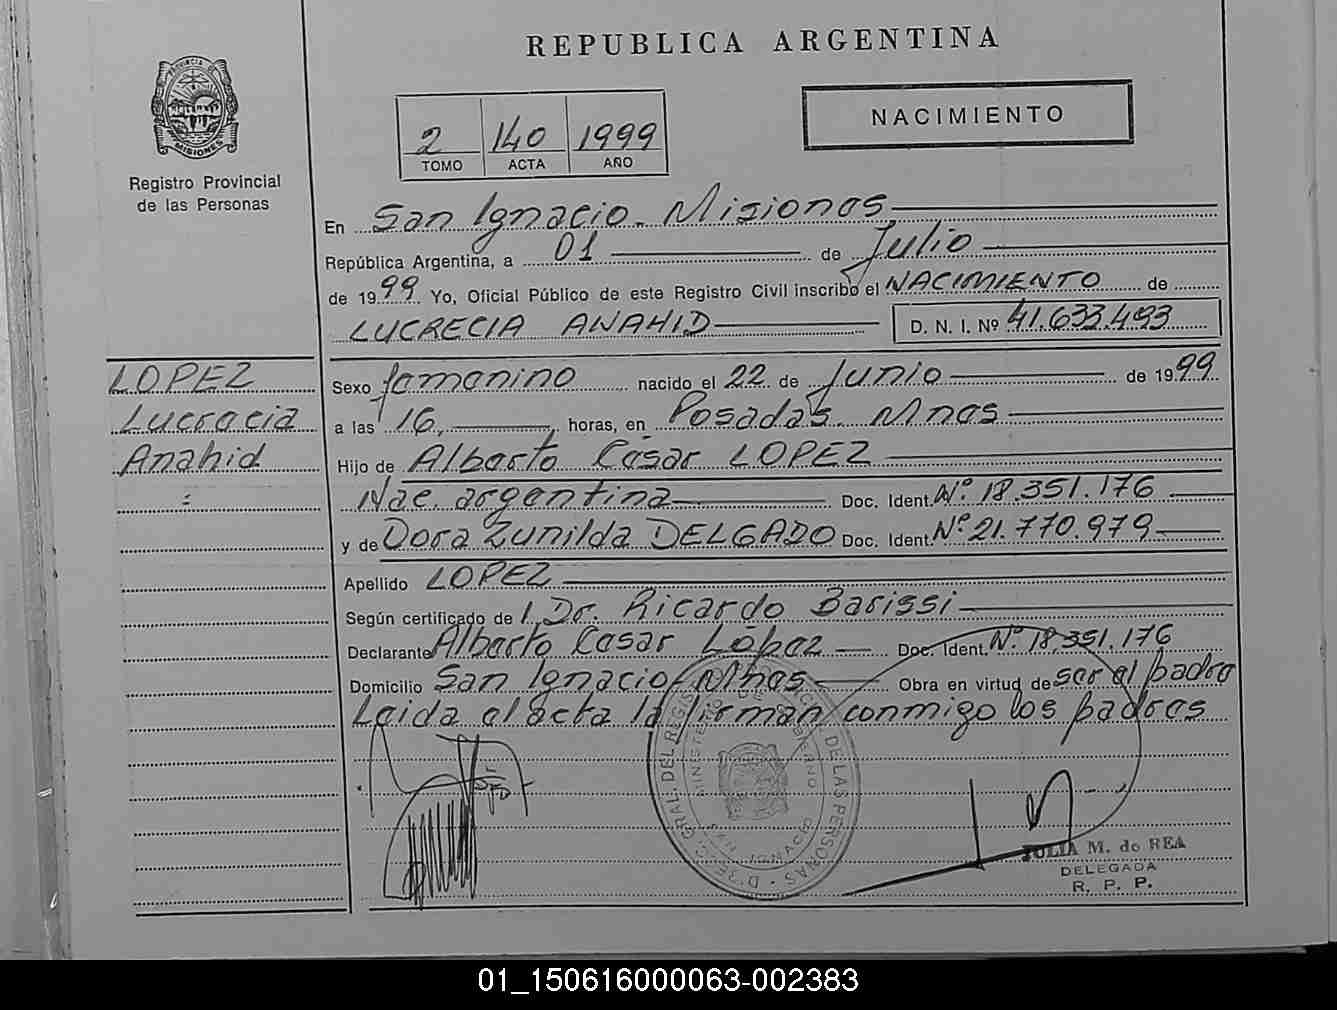 REPUBLICA ARGENTINA
PROVINCIA DE
MISIONES
Registro Provincial
de las Personas
2 140 1999
TOMO ACTA AÑO
NACIMIENTO
En San Ignacio. Misiones
República Argentina, a 01 de Julio
de 1999 Yo, Oficial Público de este Registro Civil inscribo el NACIMIENTO de
LUCRECIA ANAHID D. N. I. Nº 41.633.493
LOPEZ
Lucrecia
Anahid
Sexo femenino nacido el 22 de Junio de 1999
a las 16, horas, en Posadas. Mnes
Hijo de Alberto César LOPEZ
Nac. argentina Doc. Ident. Nº 18.351.176
y de Dora Zunilda DELGADO Doc. Ident. Nº 21.770.979
Apellido LOPEZ
Según certificado de l Dr. Ricardo Barissi
Declarante Alberto Cesar López Doc. Ident. Nº 18.351.176
Domicilio San Ignacio-Mnes Obra en virtud de ser el padre
Leida el acta la firman conmigo los padres
GRAL. DEL REGIS DE LAS PERSONAS
IGNACIO
JULIA M. de REA
DELEGADA
R. P. P.
01_150616000063-002383